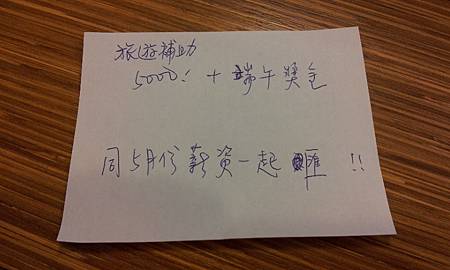 旅遊補助
5000! + 端午獎金
同5月份薪資一起匯!!